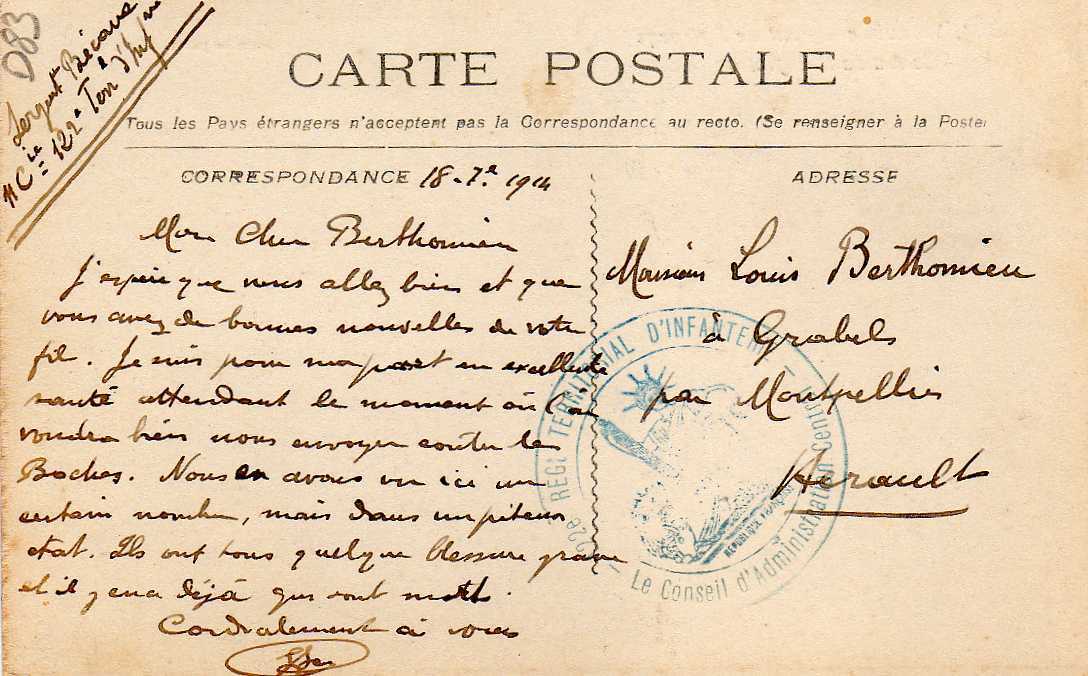 D83
Sergent Bécane
11 Cie 122e Terr d'Infie
CARTE POSTALE
Tous les Pays étrangers n'acceptent pas la Correspondance au recto. (Se renseigner à la Poste)
CORRESPONDANCE 18-7e 1914
Mon Cher Berthomieu
J'espère que vous allez bien et que
vous avez de bonnes nouvelles de votre
fil. Je suis pour ma part en excellente
santé attendant le moment où l'on
voudra bien nous envoyer contre les
Boches. Nous en avons vu ici un
certain nombre, mais dans un piteux
état. Ils ont tous quelque blessure grave
et il y en a déjà qui sont morts.
Cordialement à vous
ADRESSE
Monsieur Louis Berthomieu
à Grabels
par Montpellier
Hérault
122e RÉGT TERRITORIAL D'INFANTERIE
Le Conseil d'Administration Central
RÉPUBLIQUE FRANÇAISE